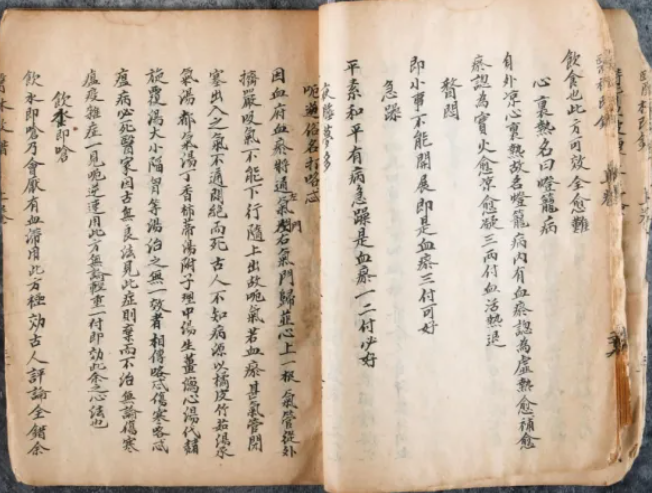 飲食也此方可效全愈難
心裏熱名曰燈籠病
身外涼心裏熱故名燈籠病內有血瘀認為虛熱愈補愈
瘀認為實火愈涼愈凝三兩付血活熱退
瞀悶
即小事不能開展即是血瘀三付可好
急躁
平素和平有病急躁是血瘀一二付必好
夢多
呃逆俗名打咯忒
因血府血瘀將通左氣門右氣門歸並心上一根氣管從外
擠嚴吸氣不能下行隨上出故呃氣若血瘀甚氣管閉
塞出入之氣不通悶絕而死古人不知病源以橘皮竹茹湯承
氣湯都氣湯丁香柿蒂湯附子理中湯生薑瀉心湯代赭
旋覆湯大小陷胷等湯治之無一效者相傳咯忒傷寒咯忒
瘟病必死醫家因古無良法見此症則棄而不治無論傷寒
瘟疫雜症一見呃逆速用此方無論輕重一付即効此余之心法也
飲水即嗆
飲水即嗆乃會厭有血滯用此方極効古人評論全錯余